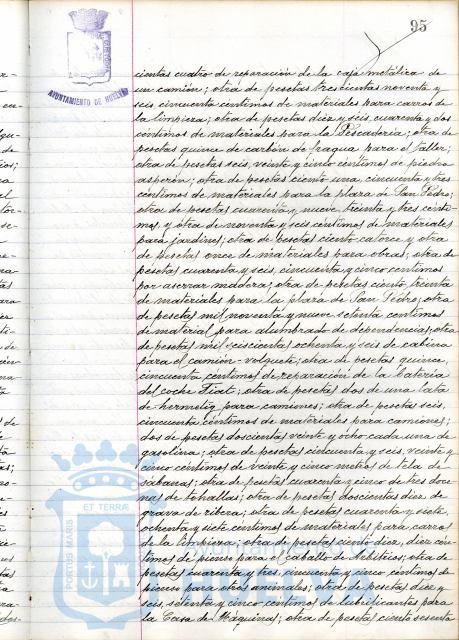 95
AYUNTAMIENTO DE HUELVA
cientas cuatro de reparación de la caja metálica de
un camión; otra de pesetas trescientas noventa y
seis cincuenta centimos de materiales para carros de
la limpieza; otra de pesetas diez y seis, cuarenta y dos
centimos de materiales para la Pescaderia; otra de
pesetas quince de carbón de fragua para el taller;
otra de pesetas seis, veinte y cinco centimos de piedra
asperón; otra de pesetas ciento una, cincuenta y tres
centimos de materiales para la plaza de San Pedro;
otra de pesetas cuarenta y nueve, treinta y tres centi-
mos, y otra de noventa y seis centimos de materiales
para jardines; otra de pesetas ciento catorce y otra
de pesetas once de materiales para obras; otra de
pesetas cuarenta y seis, cincuenta y cinco centimos
por aserrar madera; otra de pesetas ciento treinta
de materiales para la plaza de San Pedro; otra
de pesetas mil noventa y nueve setenta centimos
de material para alumbrado de dependencias; otra
de pesetas mil seiscientas ochenta y seis de cabina
para el camión-volquete; otra de pesetas quince,
cincuenta centimos de reparación de la bateria
del coche Fiat; otra de pesetas dos de una lata
de para camiones; otra de pesetas seis,
cincuenta centimos de materiales para camiones;
dos de pesetas doscientas veinte y ocho cada una de
gasolina; otra de pesetas cincuenta y seis, veinte y
cinco centimos de veinte y cinco metros de tela de
sábanas; otra de pesetas cuarenta y cinco de tres doce-
nas de tohallas; otra de pesetas doscientas diez de
grava de ribera; otra de pesetas cuarenta y siete,
ochenta y siete centimos de materiales para carros
de la limpieza; otra de pesetas ciento diez, diez cen-
timos de pienso para el caballo de Arbitrios; otra de
pesetas cuarenta y tres, cincuenta y cinco centimos de
pienso para otros animales; otra de pesetas diez y
seis, setenta y cinco centimos de lubrificantes para
la Casa de Máquinas; otra de pesetas ciento sesenta
PORTUS MARIS ET TERRAE